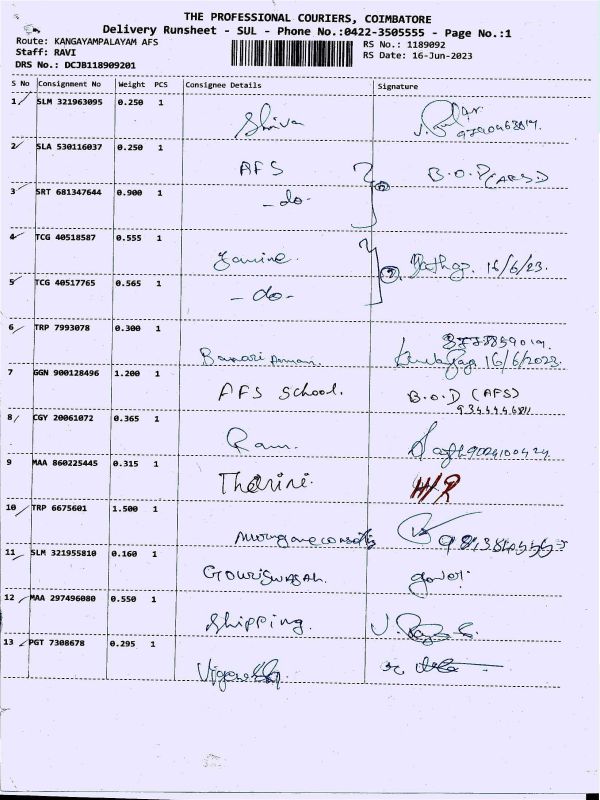 THE PROFESSIONAL COURIERS, COIMBATORE
Delivery Runsheet - SUL - Phone No.:0422-3505555 - Page No.:1
Route: KANGAYAMPALAYAM AFS RS No.: 1189092
Staff: RAVI RS Date: 16-Jun-2023
DRS No.: DCJB118909201
S No Consignment No Weight PCS Consignee Details Signature
1 SLM 321963095 0.250 1
Shiva
2 SLA 530116037 0.250 1
AFS B.O.D (AFS)
3 SRT 681347644 0.900 1
- do -
4 TCG 40518587 0.555 1
16/6/23.
5 TCG 40517765 0.565 1
- do -
6 TRP 7993078 0.300 1
16/6/2023.
7 GGN 900128496 1.200 1
AFS School. B.O.D (AFS)
8 CGY 20061072 0.365 1
Ram.
9 MAA 860225445 0.315 1
Tharini. H/R
10 TRP 6675601 1.500 1
11 SLM 321955810 0.160 1
12 MAA 297496080 0.550 1
Shipping.
13 PGT 7308678 0.295 1